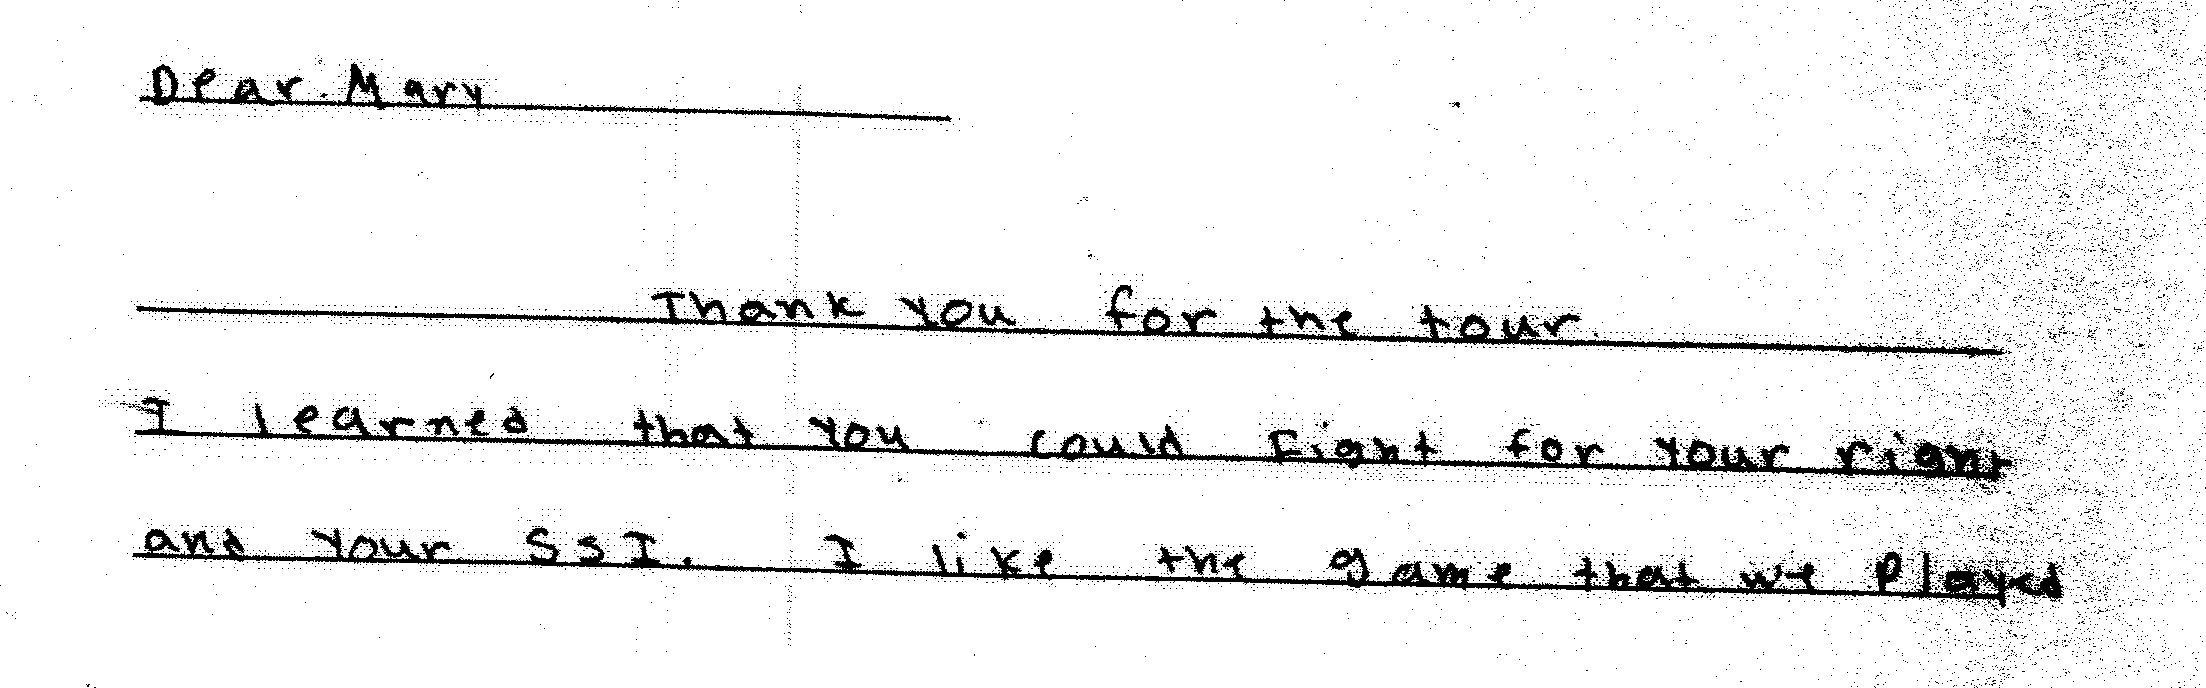 Dear. Mary
Thank you for the tour.
I learned that you could Fight for your right
and your SSI. I like the game that we played